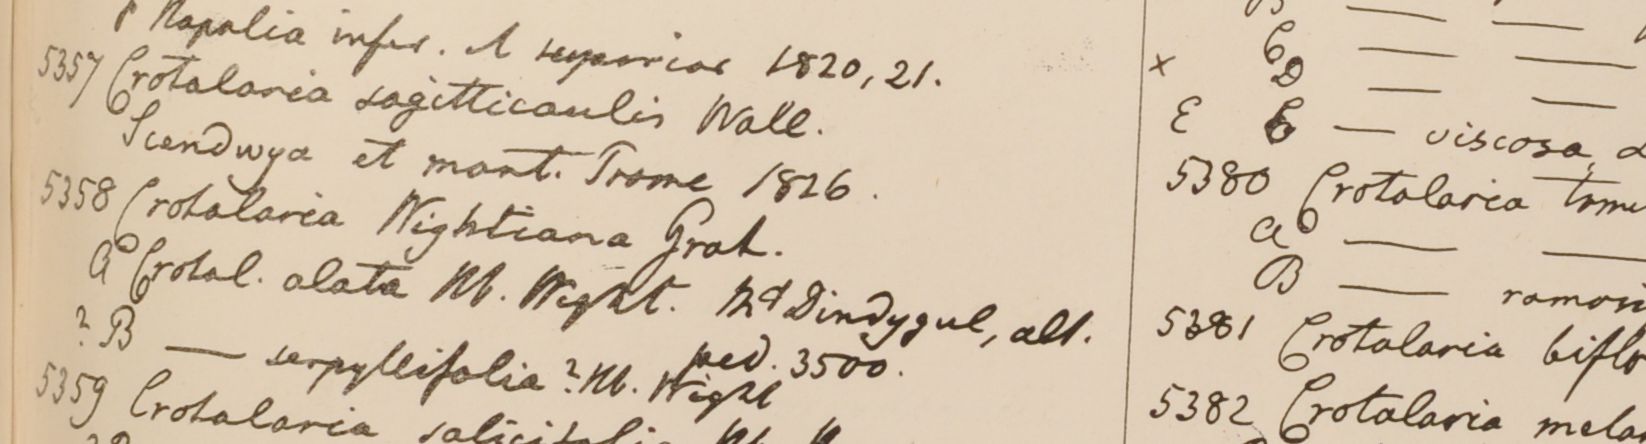 Napalia infer. A superior 1820, 21.
5357 Crotalaria sagitticaulis Wall.
Scendwga et mont. Trome 1826.
5358 Crotalaria Wightiana Grah.
a Crotal. alata Hb. Wight. Mt Dindygul, alt.
ped. 3500.
? B — serpyllifolia? Hb. Wight
5359 Crotalaria salicifolia Hb.
B — —
C — —
x D — —
E — viscosa,
5380 Crotalaria
a — —
B —
5381 Crotalaria biflo
5382 Crotalaria mela